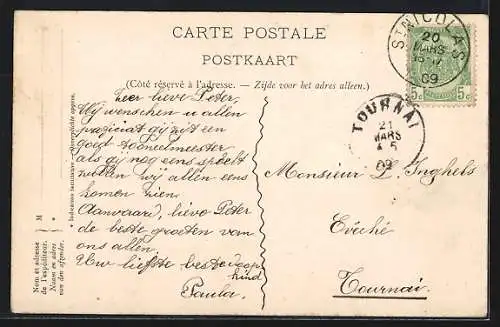 CARTE POSTALE
POSTKAART
(Côté réservé à l'adresse. — Zijde voor het adres alleen.)
ST NICOLAS
20
MARS
09
5c 5c
TOURNAI
21
MARS
09
Zeer lieve Peter,
Wij wenschen u allen
proficiat gij zijt een
goed tooneelmeester
als gij nog eens speelt
zullen wij allen eens
komen zien.
Aanvaard, lieve Peter
de beste groeten van
ons allen.
Uw liefste
kind
Paula.
Monsieur L. Inghels
Evêché
Tournai.
Nom et adresse M
de l'expéditeur.
Naam en adres
van den afzender.